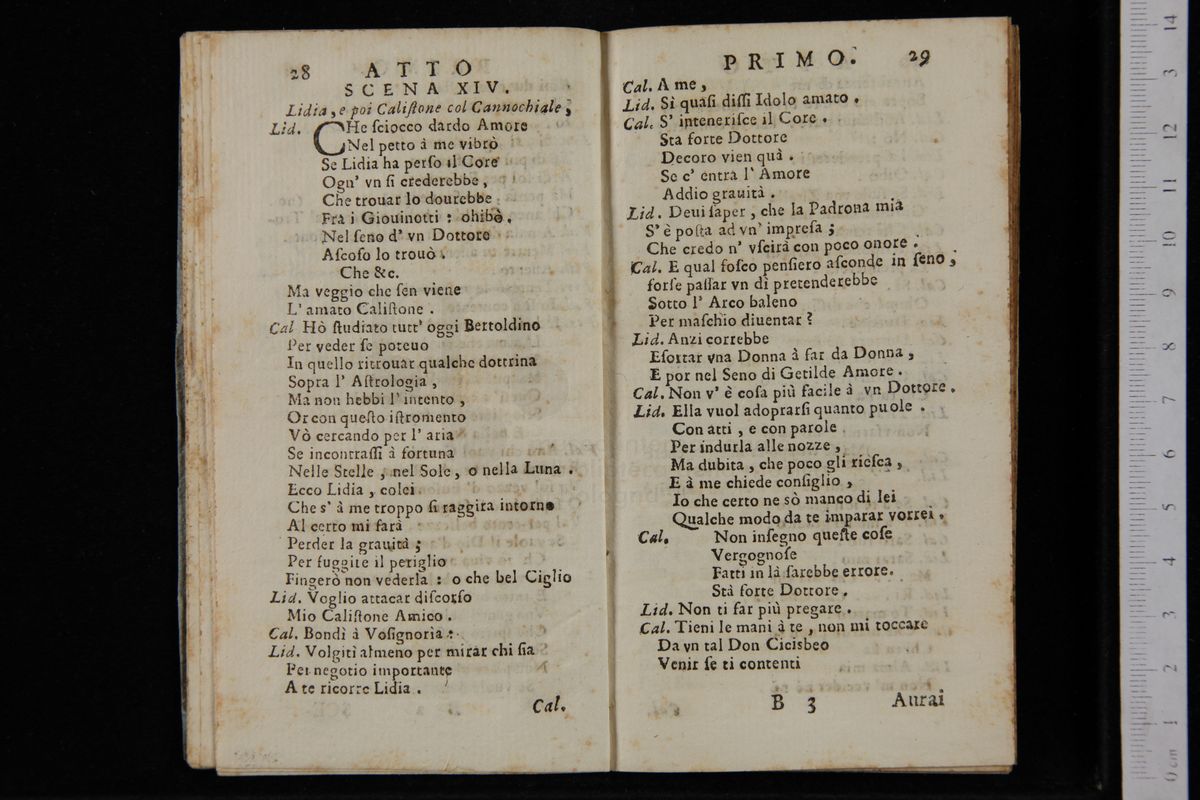 28 ATTO
SCENA XIV.
Lidia, e poi Caliſtone col Cannochiale,
Lid. CHe ſciocco dardo Amore
Nel petto à me vibrò
Se Lidia ha perſo il Core
Ogn' vn ſi crederebbe,
Che trouar lo dourebbe
Frà i Giouinotti : ohibò.
Nel ſeno d' vn Dottore
Aſcoſo lo trouò.
Che &c.
Ma veggio che ſen viene
L' amato Caliſtone.
Cal Hò ſtudiato tutt' oggi Bertoldino
Per veder ſe poteuo
In quello ritrouar qualche dottrina
Sopra l' Aſtrologia,
Ma non hebbi l' intento,
Or con queſto iſtromento
Vò cercando per l' aria
Se incontraſſi à fortuna
Nelle Stelle, nel Sole, o nella Luna.
Ecco Lidia, colei
Che s' à me troppo ſi raggira intorno
Al certo mi farà
Perder la grauità;
Per fuggire il periglio
Fingerò non vederla : o che bel Ciglio
Lid. Voglio attacar diſcorſo
Mio Caliſtone Amico.
Cal. Bondì à Voſignoria :
Lid. Volgiti almeno per mirar chi ſia
Per negotio importante
A te ricorre Lidia.
Cal.
PRIMO. 29
Cal. A me,
Lid. Sì quaſi diſſi Idolo amato.
Cal. S' inteneriſce il Core.
Sta forte Dottore
Decoro vien quà.
Se c' entra l' Amore
Addio grauità.
Lid. Deui ſaper, che la Padrona mia
S' è poſta ad vn' impreſa;
Che credo n' vſcirà con poco onore.
Cal. E qual foſco penſiero aſconde in ſeno,
forſe paſſar vn dì pretenderebbe
Sotto l' Arco baleno
Per maſchio diuentar?
Lid. Anzi correbbe
Eſortar vna Donna à far da Donna,
E por nel Seno di Getilde Amore.
Cal. Non v' è coſa più facile à vn Dottore.
Lid. Ella vuol adoprarſi quanto puole.
Con atti, e con parole
Per indurla alle nozze,
Ma dubita, che poco gli rieſca,
E à me chiede conſiglio,
Io che certo ne sò manco di lei
Qualche modo da te imparar vorrei.
Cal. Non inſegno queſte coſe
Vergognoſe
Fatti in là ſarebbe errore.
Stà forte Dottore.
Lid. Non ti far più pregare.
Cal. Tieni le mani à te, non mi toccare
Da vn tal Don Cicisbeo
Venir ſe ti contenti
B 3 Aurai
0 cm 1 2 3 4 5 6 7 8 9 10 11 12 13 14